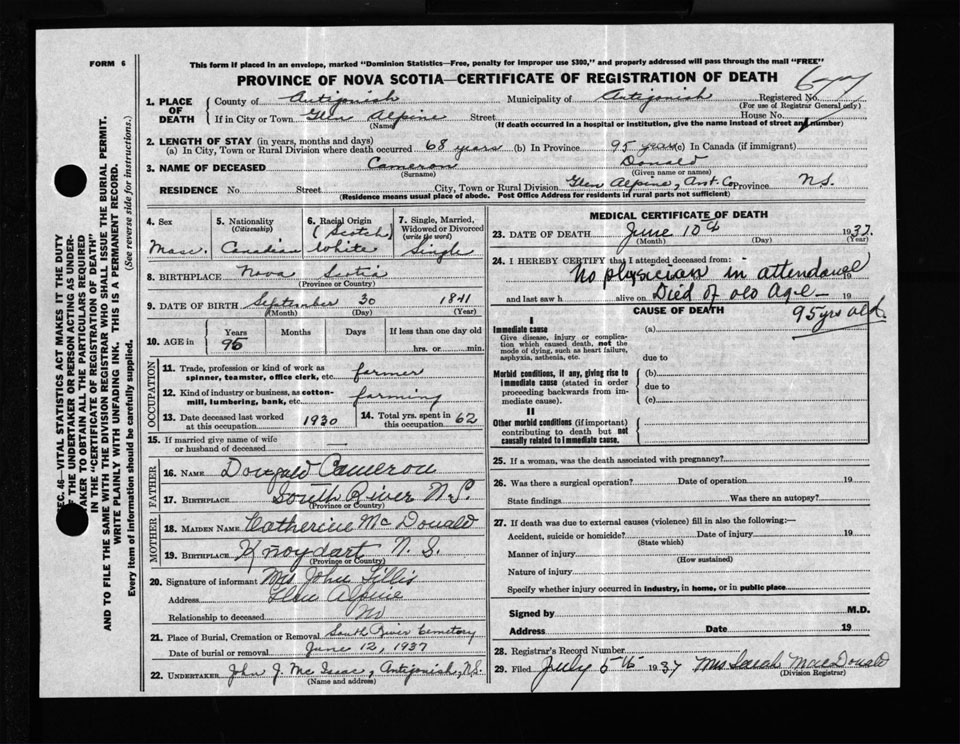 FORM 6
This form if placed in an envelope, marked "Dominion Statistics—Free, penalty for improper use $300," and properly addressed will pass through the mail "FREE"
PROVINCE OF NOVA SCOTIA—CERTIFICATE OF REGISTRATION OF DEATH
1. PLACE OF DEATH
County of Antigonish Municipality of Antigonish Registered No.
(For use of Registrar General only)
If in City or Town Glen Alpine Street House No.
(Name) (If death occurred in a hospital or institution, give the name instead of street and number)
2. LENGTH OF STAY (in years, months and days)
(a) In City, Town or Rural Division where death occurred 68 years (b) In Province 95 years (c) In Canada (if immigrant)
3. NAME OF DECEASED Cameron Donald
(Surname) (Given name or names)
RESIDENCE No. Street City, Town or Rural Division Glen Alpine, Ant. Co. Province N.S.
(Residence means usual place of abode. Post Office Address for residents in rural parts not sufficient)
4. Sex 5. Nationality (Citizenship) 6. Racial Origin (Scotch) 7. Single, Married, Widowed or Divorced (write the word)
Canadian White Single
8. BIRTHPLACE Nova Scotia
(Province or Country)
9. DATE OF BIRTH September 30 1841
(Month) (Day) (Year)
10. AGE in Years Months Days If less than one day old
95 hrs. or min.
OCCUPATION
11. Trade, profession or kind of work as spinner, teamster, office clerk, etc. farmer
12. Kind of industry or business, as cotton-mill, lumbering, bank, etc. farming
13. Date deceased last worked at this occupation 1930 14. Total yrs. spent in this occupation 62
15. If married give name of wife or husband of deceased
FATHER
16. NAME Dougald Cameron
17. BIRTHPLACE South River N.S.
(Province or Country)
MOTHER
18. MAIDEN NAME Catherine McDonald
19. BIRTHPLACE Knoydart N.S.
(Province or Country)
20. Signature of informant Mrs John Gillis
Address Glen Alpine
Relationship to deceased No
21. Place of Burial, Cremation or Removal South River Cemetery
Date of burial or removal June 12, 1937
22. UNDERTAKER John J. McIsaac, Antigonish, N.S.
(Name and address)
MEDICAL CERTIFICATE OF DEATH
23. DATE OF DEATH June 10th 1937.
(Month) (Day) (Year)
24. I HEREBY CERTIFY that I attended deceased from:
No physician in attendance 19
and last saw h alive on Died of old Age - 19
CAUSE OF DEATH 95 yrs old.
I
Immediate cause (a)
Give disease, injury or complication which caused death, not the mode of dying, such as heart failure, asphyxia, asthenia, etc. due to
Morbid conditions, if any, giving rise to immediate cause (stated in order proceeding backwards from immediate cause). (b)
due to
(c)
II
Other morbid conditions (if important) contributing to death but not causally related to immediate cause.
25. If a woman, was the death associated with pregnancy?
26. Was there a surgical operation? Date of operation 19
State findings Was there an autopsy?
27. If death was due to external causes (violence) fill in also the following:—
Accident, suicide or homicide? Date of injury 19
(State which)
Manner of injury
(How sustained)
Nature of injury
Specify whether injury occurred in industry, in home, or in public place
Signed by M.D.
Address Date 19
28. Registrar's Record Number
29. Filed July 5th 1937 Mrs Sarah MacDonald
(Division Registrar)
SEC. 46—VITAL STATISTICS ACT MAKES IT THE DUTY
OF THE UNDERTAKER OR PERSON ACTING AS UNDER-
TAKER TO OBTAIN ALL THE PARTICULARS REQUIRED
IN THE "CERTIFICATE OF REGISTRATION OF DEATH"
AND TO FILE THE SAME WITH THE DIVISION REGISTRAR WHO SHALL ISSUE THE BURIAL PERMIT.
WRITE PLAINLY WITH UNFADING INK. THIS IS A PERMANENT RECORD.
Every item of information should be carefully supplied. (See reverse side for instructions.)